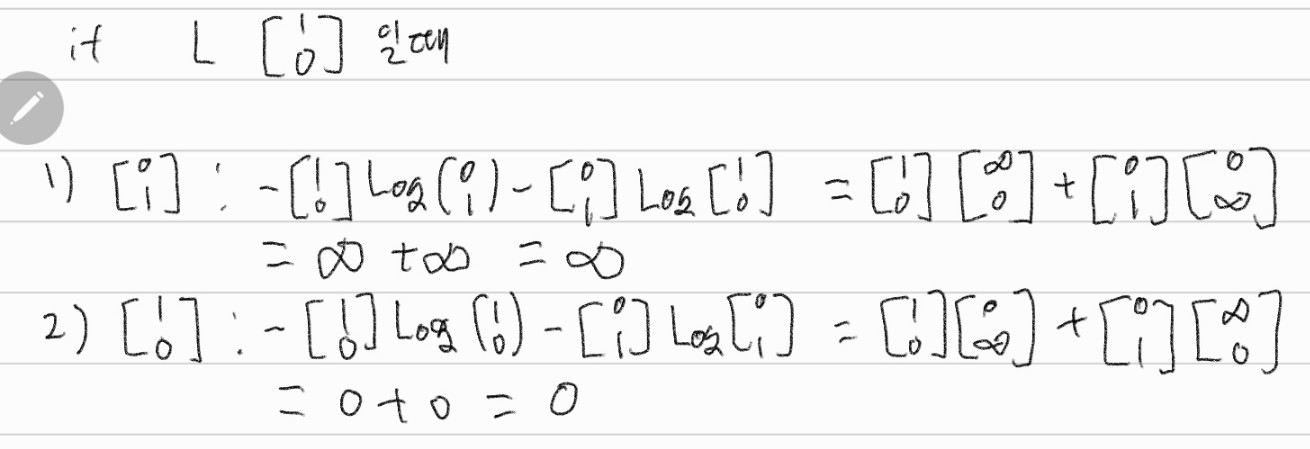 if L [1 0] 일때
1) [0 1] : -[1 0] Log(0 1) - [0 1] Log [1 0] = [1 0] [∞ 0] + [0 1] [0 ∞]
= ∞ + ∞ = ∞
2) [1 0] : -[1 0] Log (1 0) - [0 1] Log [0 1] = [1 0] [0 ∞] + [0 1] [∞ 0]
= 0 + 0 = 0